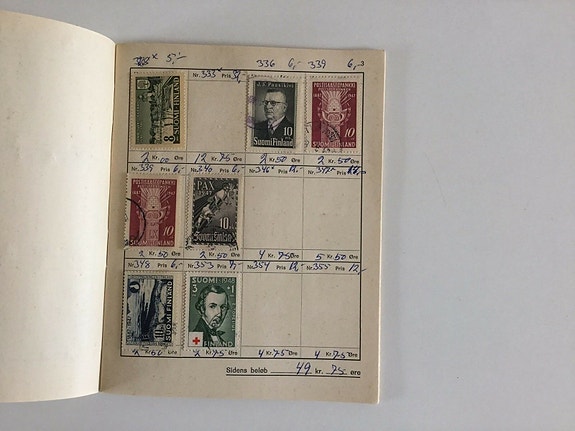 5,-
336 6,- 339 6,-
Nr. 333 x Pris
8 SUOMI FINLAND
J.K. Paasikivi
10
Suomi Finland
POSTISÄÄSTÖPANKKI
1887 1947
10
SUOMI FINLAND
2 Kr. 00 Øre 12 Kr. 75 Øre 2 Kr. 50 Øre 2 Kr. 50 Øre
Nr. 339 Pris 6,- Nr. 340 Pris 6,- Nr. 346 Pris Nr. Pris
POSTISÄÄSTÖPANKKI
1887 1947
10
SUOMI FINLAND
PAX
1947
10
Suomi Finland
2 Kr. 50 Øre 2 Kr. 50 Øre 4 Kr. 75 Øre 5 Kr. 50 Øre
Nr. 348 Pris 6,- Nr. 353 Pris Nr. 354 Pris 12,- Nr. 355 Pris 12,-
10
SUOMI FINLAND
SUOMI 1948
3
FINLAND
2 Kr. 50 Øre 2 Kr. 75 Øre 4 Kr. 75 Øre 4 Kr. 75 Øre
Sidens beløb 49 kr. 75 øre